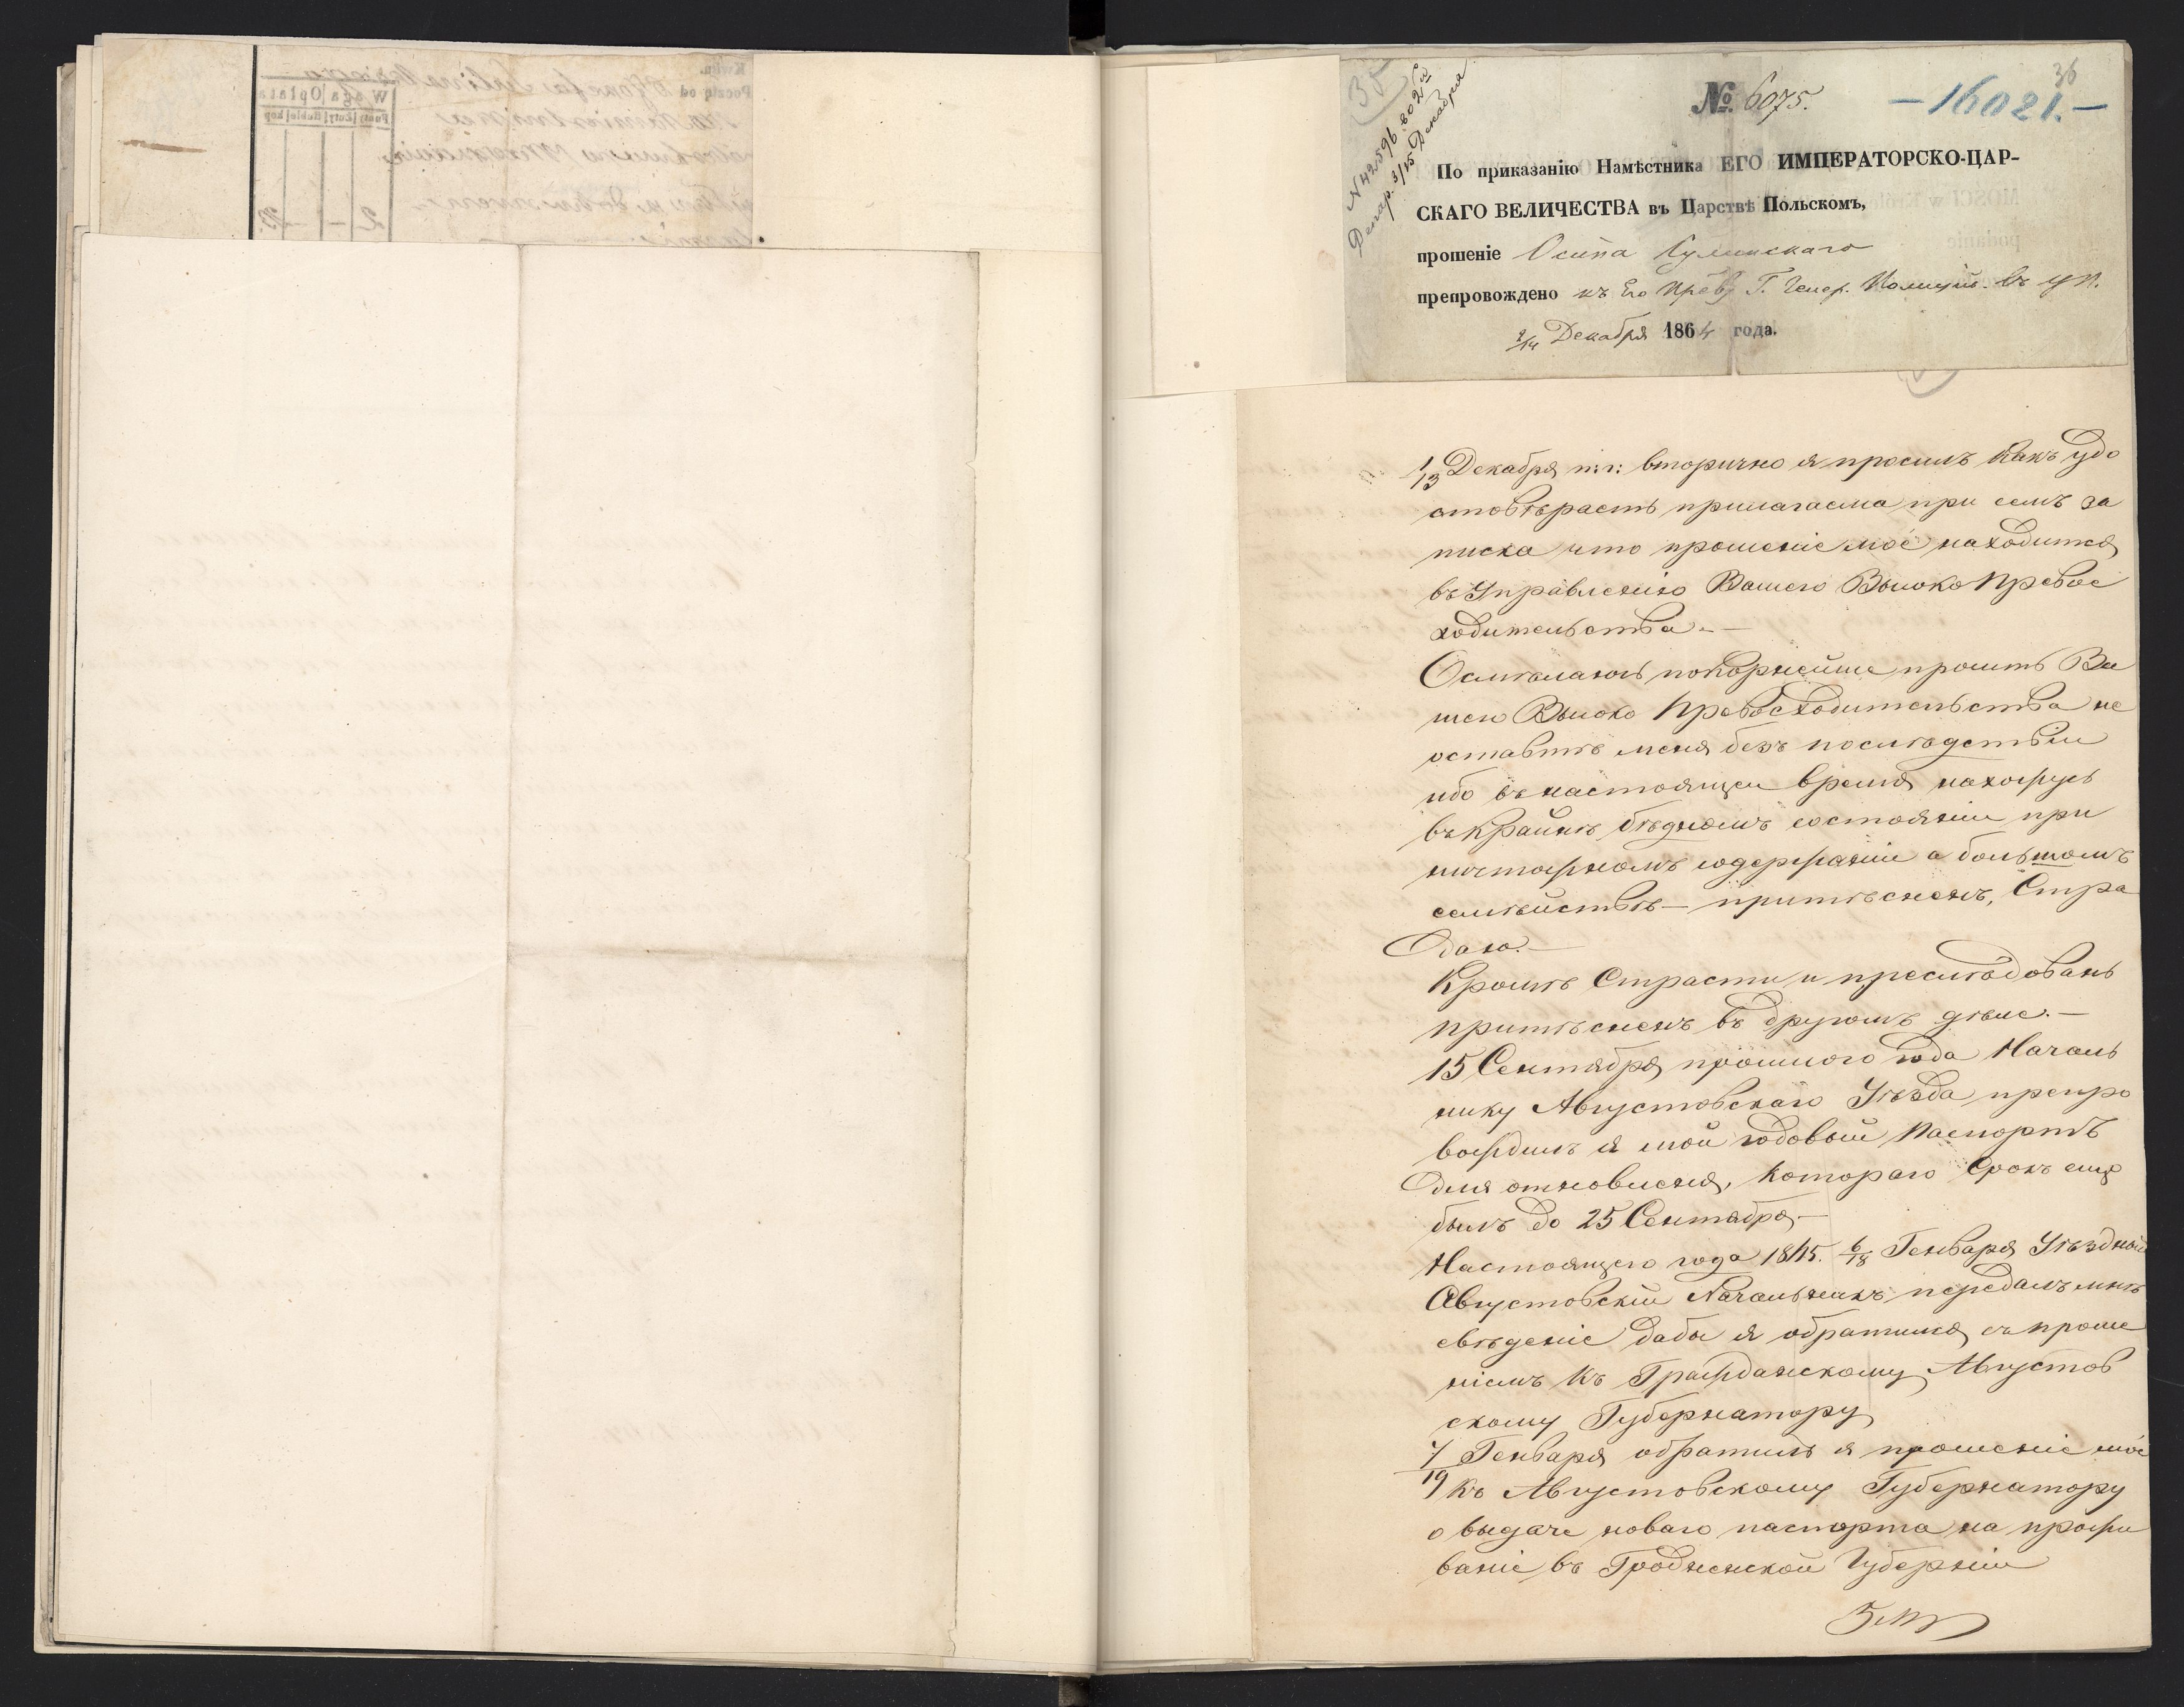 35
N 42596.802
Декабря
№ 6075.
36
-16021.-
По приказанію Намѣстника ЕГО ИМПЕРАТОРСКО-ЦАР-
СКАГО ВЕЛИЧЕСТВА въ Царствѣ Польскомъ,
прошеніе Осипа Сулинскаго
препровождено къ Его Прев. Г. Генер. Полиціи. въ Ц П.
2/14 Декабря 1864 года.
1/13 Декабря т: г: вторично я просилъ какъ удо
стовѣраетъ прилагаема при семъ за
писка что прошеніе моё находится
въ Управленію Вашего Высоко Превос
ходительства.—
Осмѣлаюсь покорнейше просить Ва
шего Высоко Превосходительства не
оставитъ меня безъ послѣдствіи
ибо въ настоящеи время нахожусь
въ крайнѣ бѣдномъ состояніи при
ничтожномъ содержаніи а большомъ
семѣйствѣ — притѣсненъ, Стра
даю.—
Кромѣ Страсти и преслѣдовань
притѣсненъ въ другомъ дѣле.—
15 Сентября прошлого года Началь
нику Августовскаго Уѣзда препро
водилъ я мой годовый паспортъ
для отновленя, котораго срокъ еще
былъ до 25 Сентября—
Настоящего года 1865. 6/18 Генваря Уѣздный
Августовскіи Начальникъ передалъ мнѣ
свѣденіе дабы я обратился съ проше
ніемъ къ Гражданскому Августов
скому Губернатору
7/19 Генваря обратилъ я прошеніе моё
къ Августовскому Губернатору
о выдаче новаго паспорта на прожи
ваніе въ Гродненской Губерніи